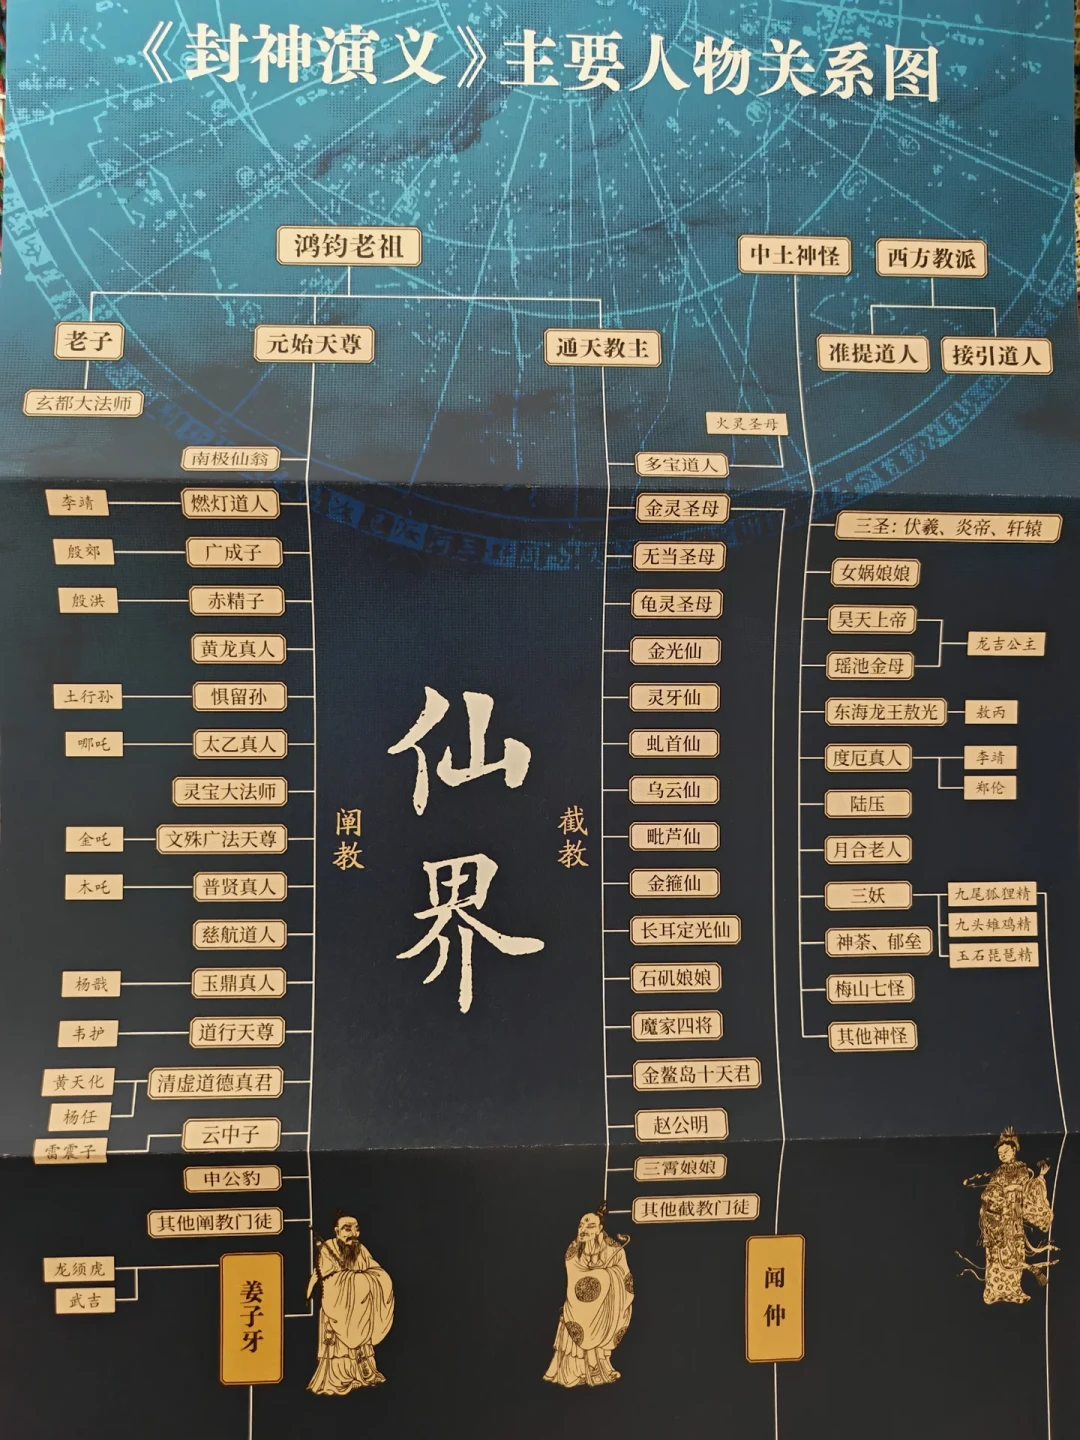 《封神演义》主要人物关系图
鸿钧老祖
中土神怪
西方教派
老子
元始天尊
通天教主
准提道人
接引道人
玄都大法师
火灵圣母
南极仙翁
多宝道人
李靖
燃灯道人
金灵圣母
三圣：伏羲、炎帝、轩辕
殷郊
广成子
无当圣母
女娲娘娘
殷洪
赤精子
龟灵圣母
昊天上帝
龙吉公主
黄龙真人
金光仙
瑶池金母
土行孙
惧留孙
灵牙仙
东海龙王敖光
敖丙
哪吒
太乙真人
虬首仙
度厄真人
李靖
郑伦
灵宝大法师
乌云仙
陆压
金吒
文殊广法天尊
毗芦仙
月合老人
木吒
普贤真人
金箍仙
三妖
九尾狐狸精
九头雉鸡精
玉石琵琶精
慈航道人
长耳定光仙
神荼、郁垒
杨戬
玉鼎真人
石矶娘娘
梅山七怪
韦护
道行天尊
魔家四将
其他神怪
黄天化
杨任
清虚道德真君
金鳌岛十天君
雷震子
云中子
赵公明
申公豹
三霄娘娘
其他阐教门徒
其他截教门徒
龙须虎
武吉
姜子牙
闻仲
仙界
阐教
截教